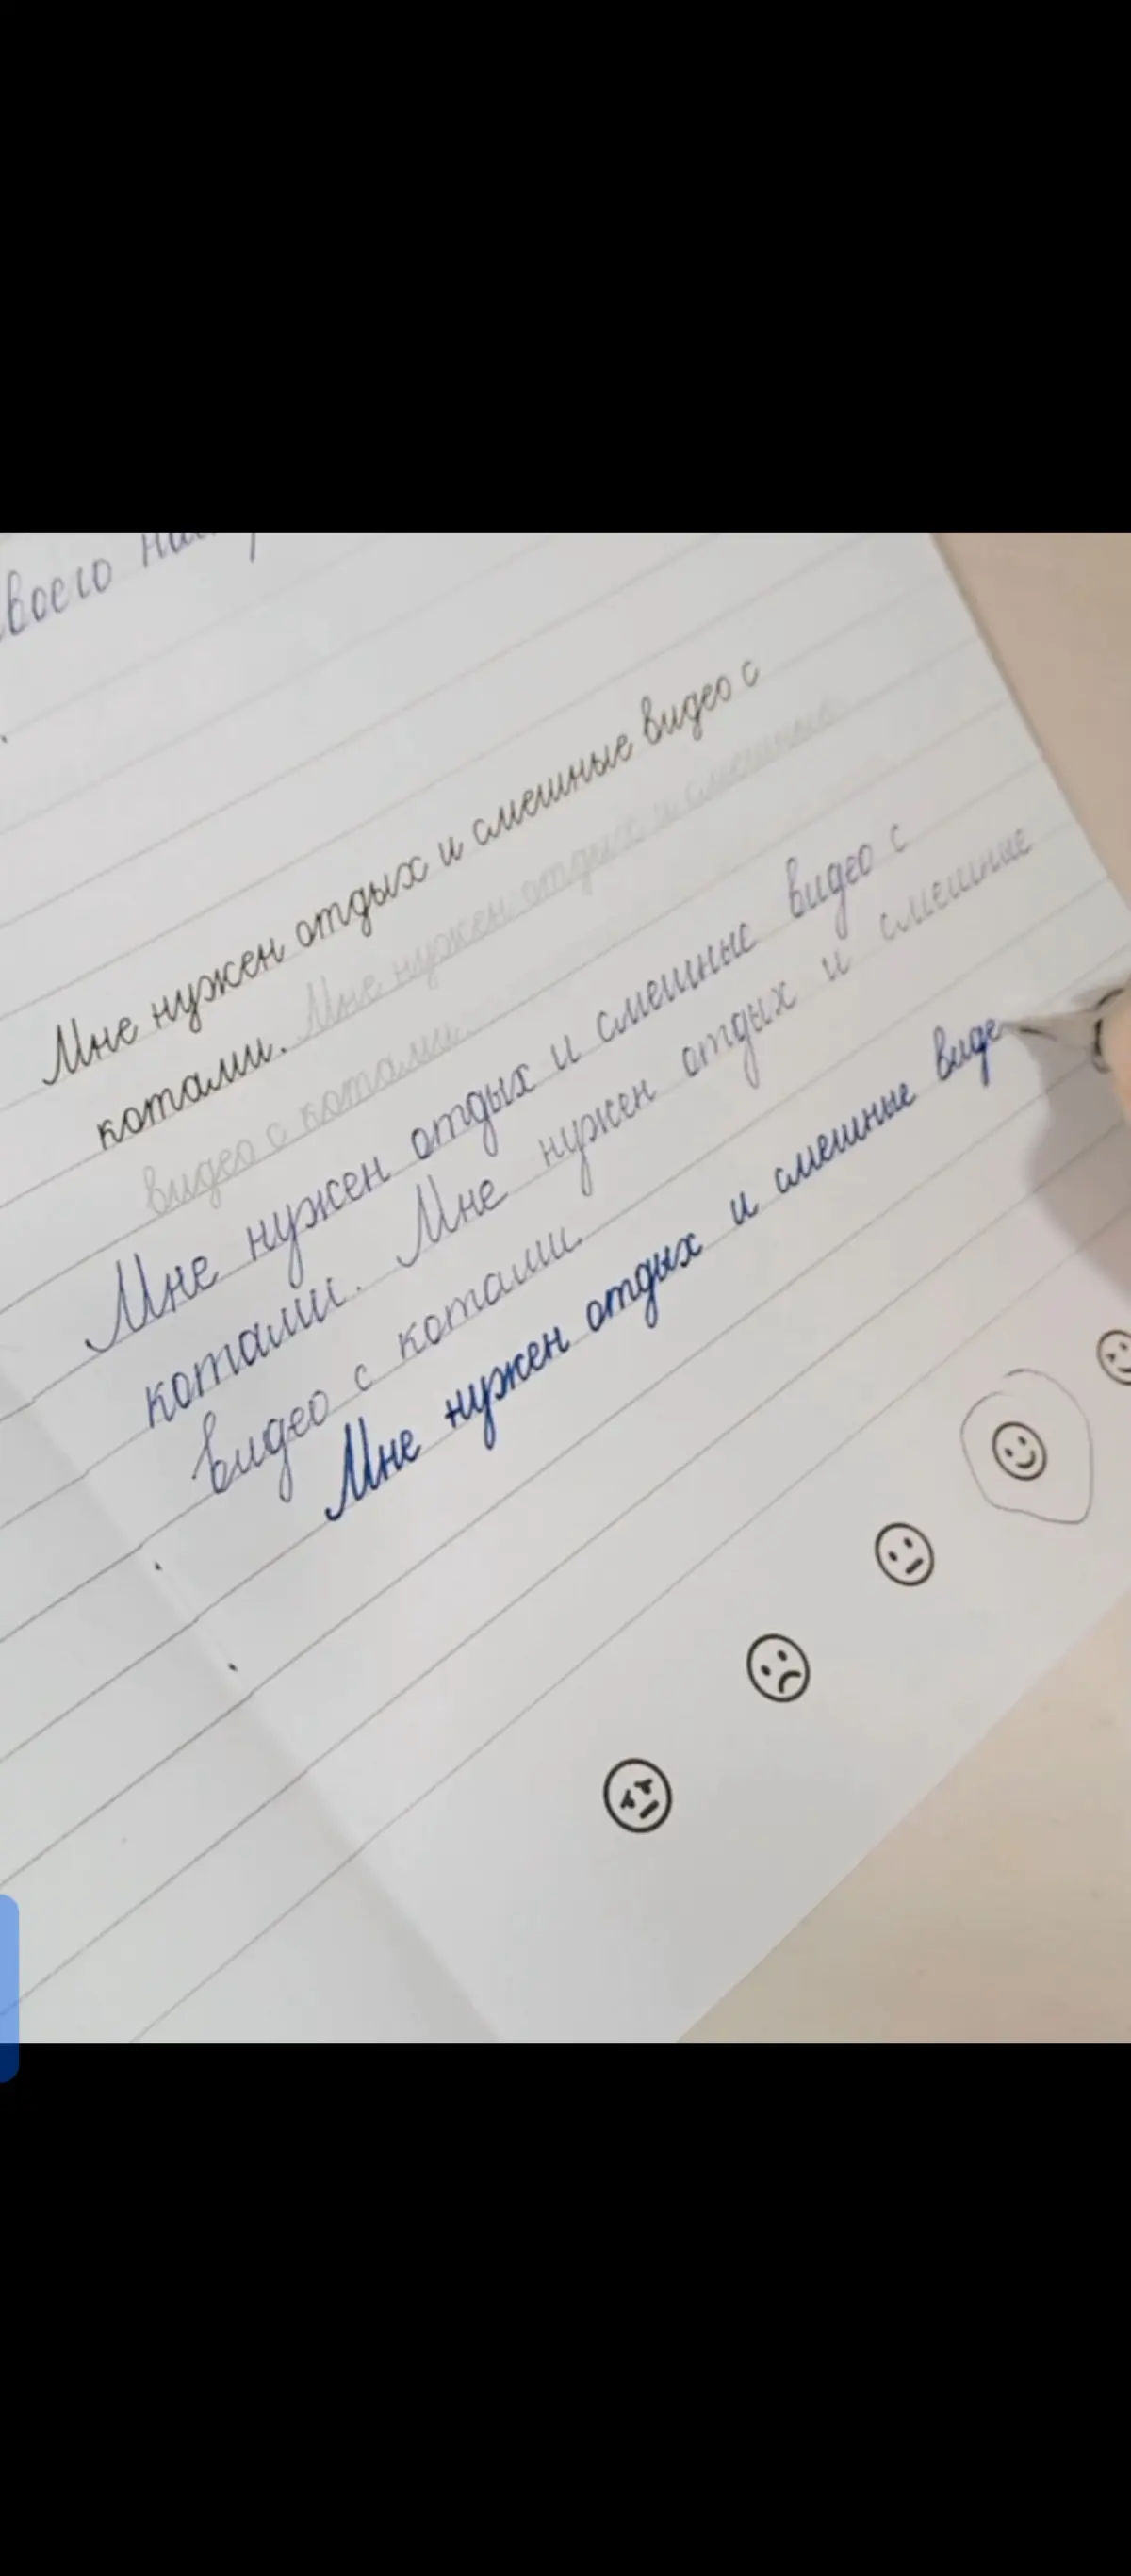 своего
Мне нужен отдых и смешные видео с
котами. Мне нужен отдых и смешные
видео с котами.
Мне нужен отдых и смешные видео с
котами. Мне нужен отдых и смешные
видео с котами.
Мне нужен отдых и смешные виде